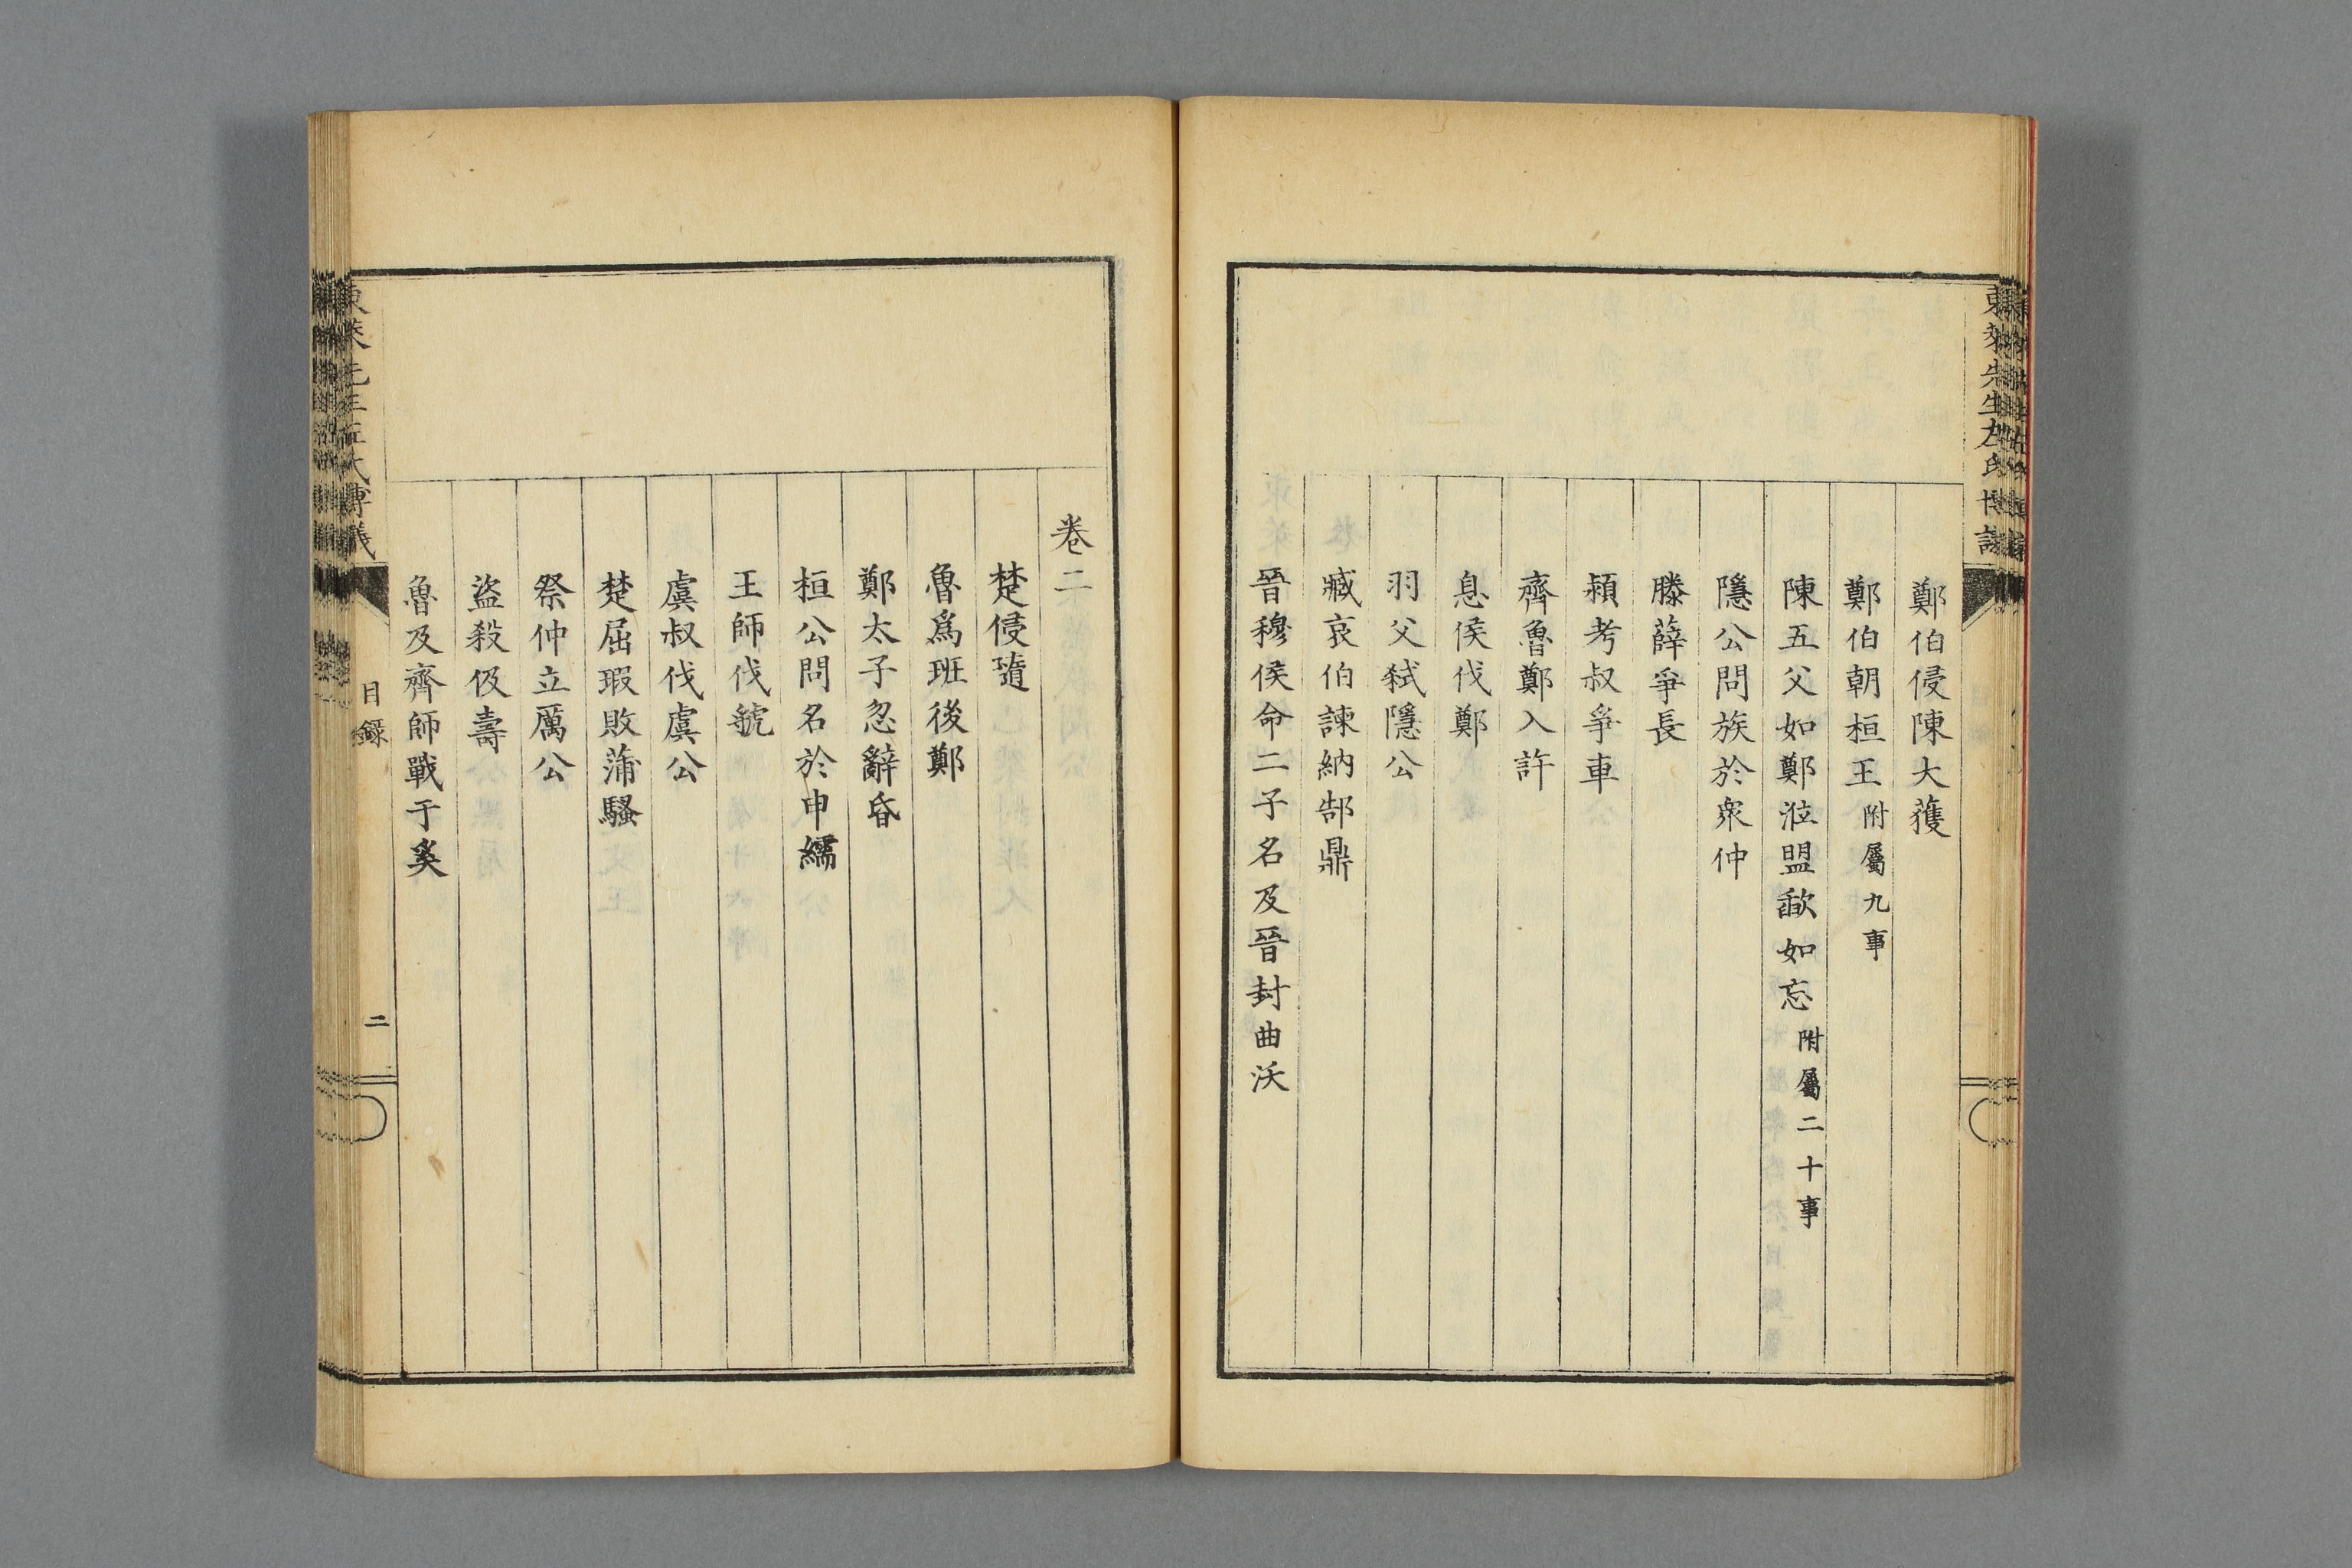 鄭伯侵陳大獲
鄭伯朝桓王附屬九事
陳五父如鄭涖盟歃如忘附屬二十事
隱公問族於衆仲
滕薛爭長
潁考叔爭車
齊魯鄭入許
息侯伐鄭
羽父弒隱公
臧哀伯諫納郜鼎
晉穆侯命二子名及晉封曲沃
卷二
楚侵隨
魯爲班後鄭
鄭太子忽辭昏
桓公問名於申繻
王師伐虢
虞叔伐虞公
楚屈瑕敗蒲騷
祭仲立厲公
盜殺伋壽
魯及齊師戰于奚
東萊先生左氏博議
目錄
二